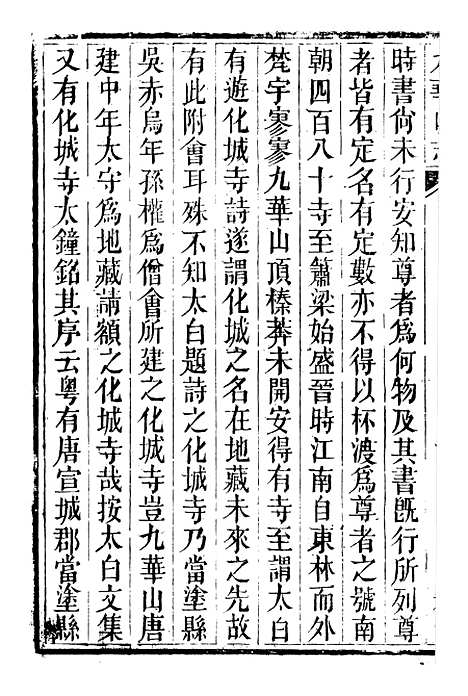 時書尙未行安知尊者爲何物及其書旣行所列尊
者皆有定名有定數亦不得以杯渡爲尊者之號南
朝四百八十寺至簫梁始盛晉時江南自東林而外
梵宇寥寥九華山頂榛莽未開安得有寺至謂太白
有遊化城寺詩遂謂化城之名在地藏未來之先故
有此附會耳殊不知太白題詩之化城寺乃當塗縣
吳赤烏年孫權爲僧會所建之化城寺豈九華山唐
建中年太守爲地藏請額之化城寺哉按太白文集
又有化城寺太鐘銘其序云粵有唐宣城郡當塗縣